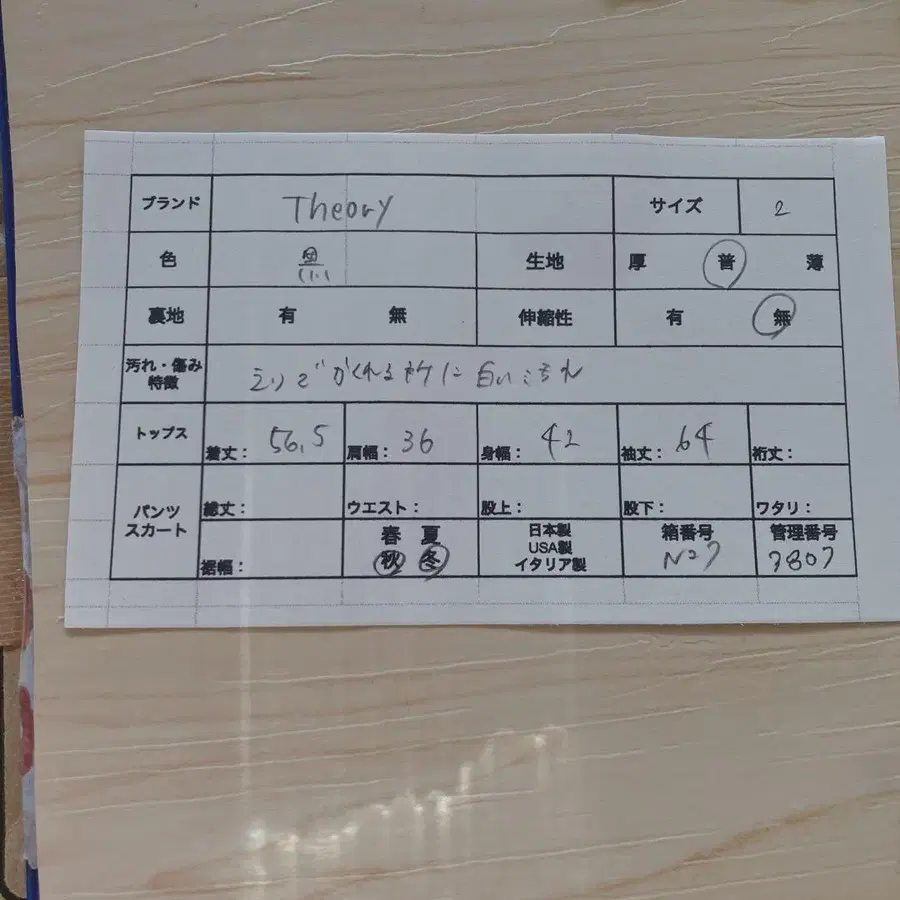 ブランド Theory サイズ 2
色 黒 生地 厚 普 薄
裏地 有 無 伸縮性 有 無
汚れ・傷み
特徴 えりでかくれる所に白い汚れ
トップス 着丈： 56.5 肩幅： 36 身幅： 42 袖丈： 64 裄丈：
パンツ
スカート 総丈： ウエスト： 股上： 股下： ワタリ：
裾幅： 春 夏
秋 冬
日本製
USA製
イタリア製
箱番号
No7
管理番号
7807